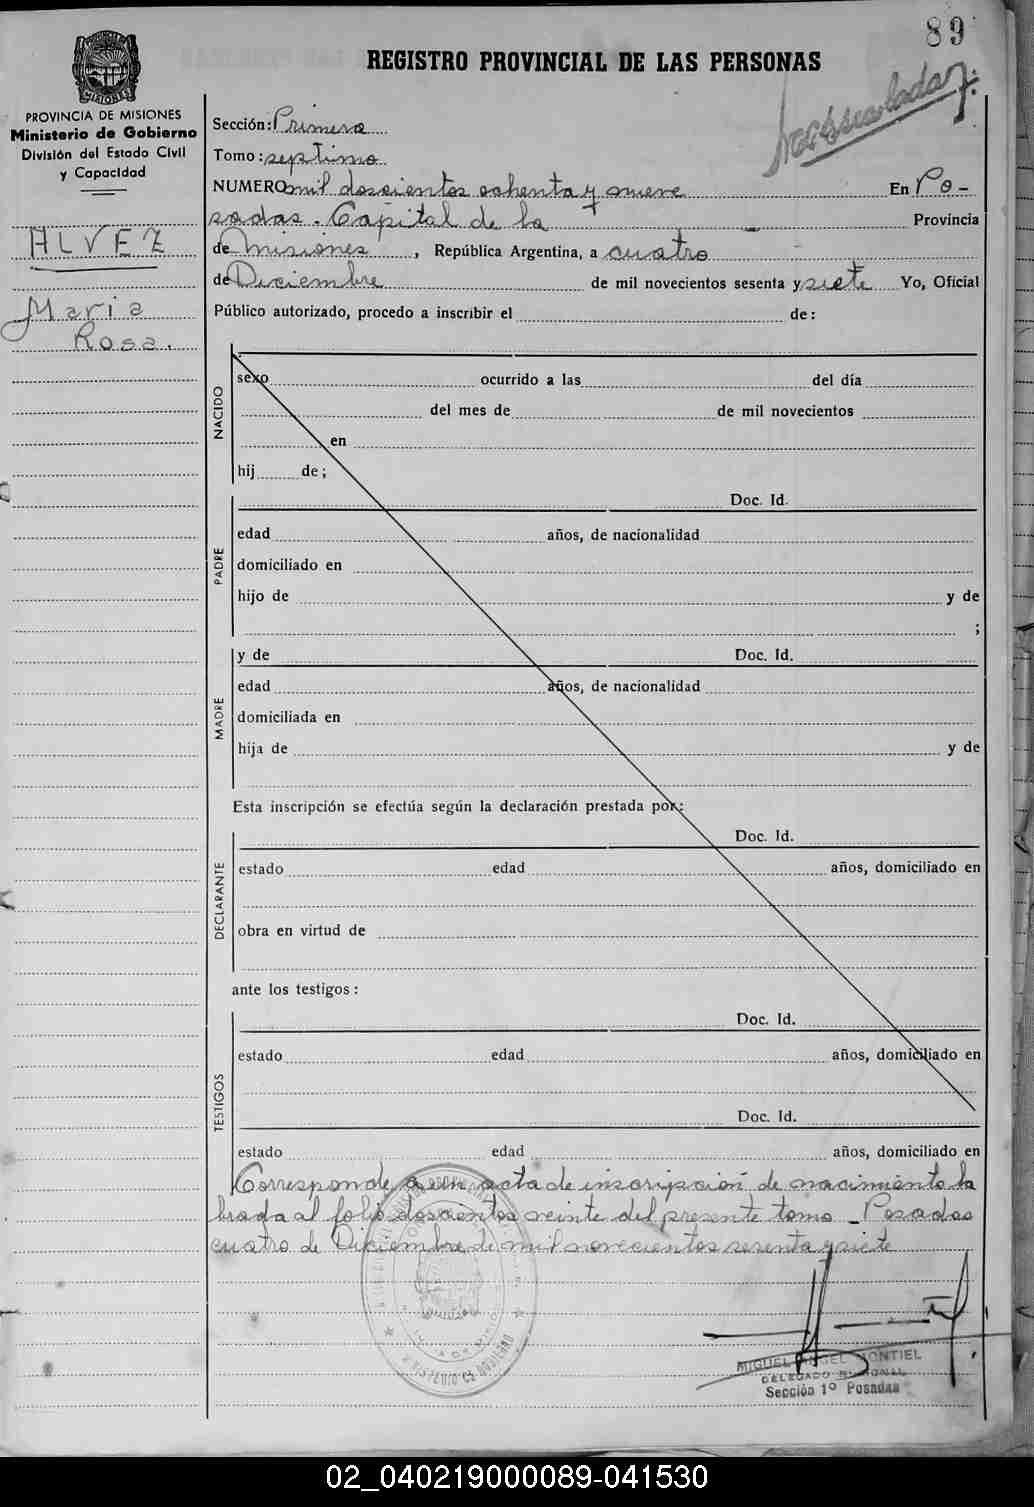 89
REGISTRO PROVINCIAL DE LAS PERSONAS
PROVINCIA DE MISIONES
Ministerio de Gobierno
División del Estado Civil
y Capacidad
ALVEZ
Maria
Rosa.
Sección: Primera
Tomo: septimo
NUMERO mil doscientos ochenta y nueve En Po-
sadas. Capital de la Provincia
de Misiones, República Argentina, a cuatro
de Diciembre de mil novecientos sesenta y siete Yo, Oficial
Público autorizado, procedo a inscribir el de:
NACIDO
sexo ocurrido a las del día
del mes de de mil novecientos
en
hij de;
PADRE
Doc. Id.
edad años, de nacionalidad
domiciliado en
hijo de y de
;
MADRE
y de Doc. Id.
edad años, de nacionalidad
domiciliada en
hija de y de
Esta inscripción se efectúa según la declaración prestada por:
DECLARANTE
Doc. Id.
estado edad años, domiciliado en
obra en virtud de
ante los testigos:
TESTIGOS
Doc. Id.
estado edad años, domiciliado en
Doc. Id.
estado edad años, domiciliado en
Corresponde a un acta de inscripción de nacimiento la
brada al folio doscientos veinte del presente tomo - Posadas
cuatro de Diciembre de mil novecientos sesenta y siete
MINISTERIO DE GOBIERNO
MIGUEL ANGEL MONTIEL
DELEGADO
Sección 1º Posadas
02_040219000089-041530